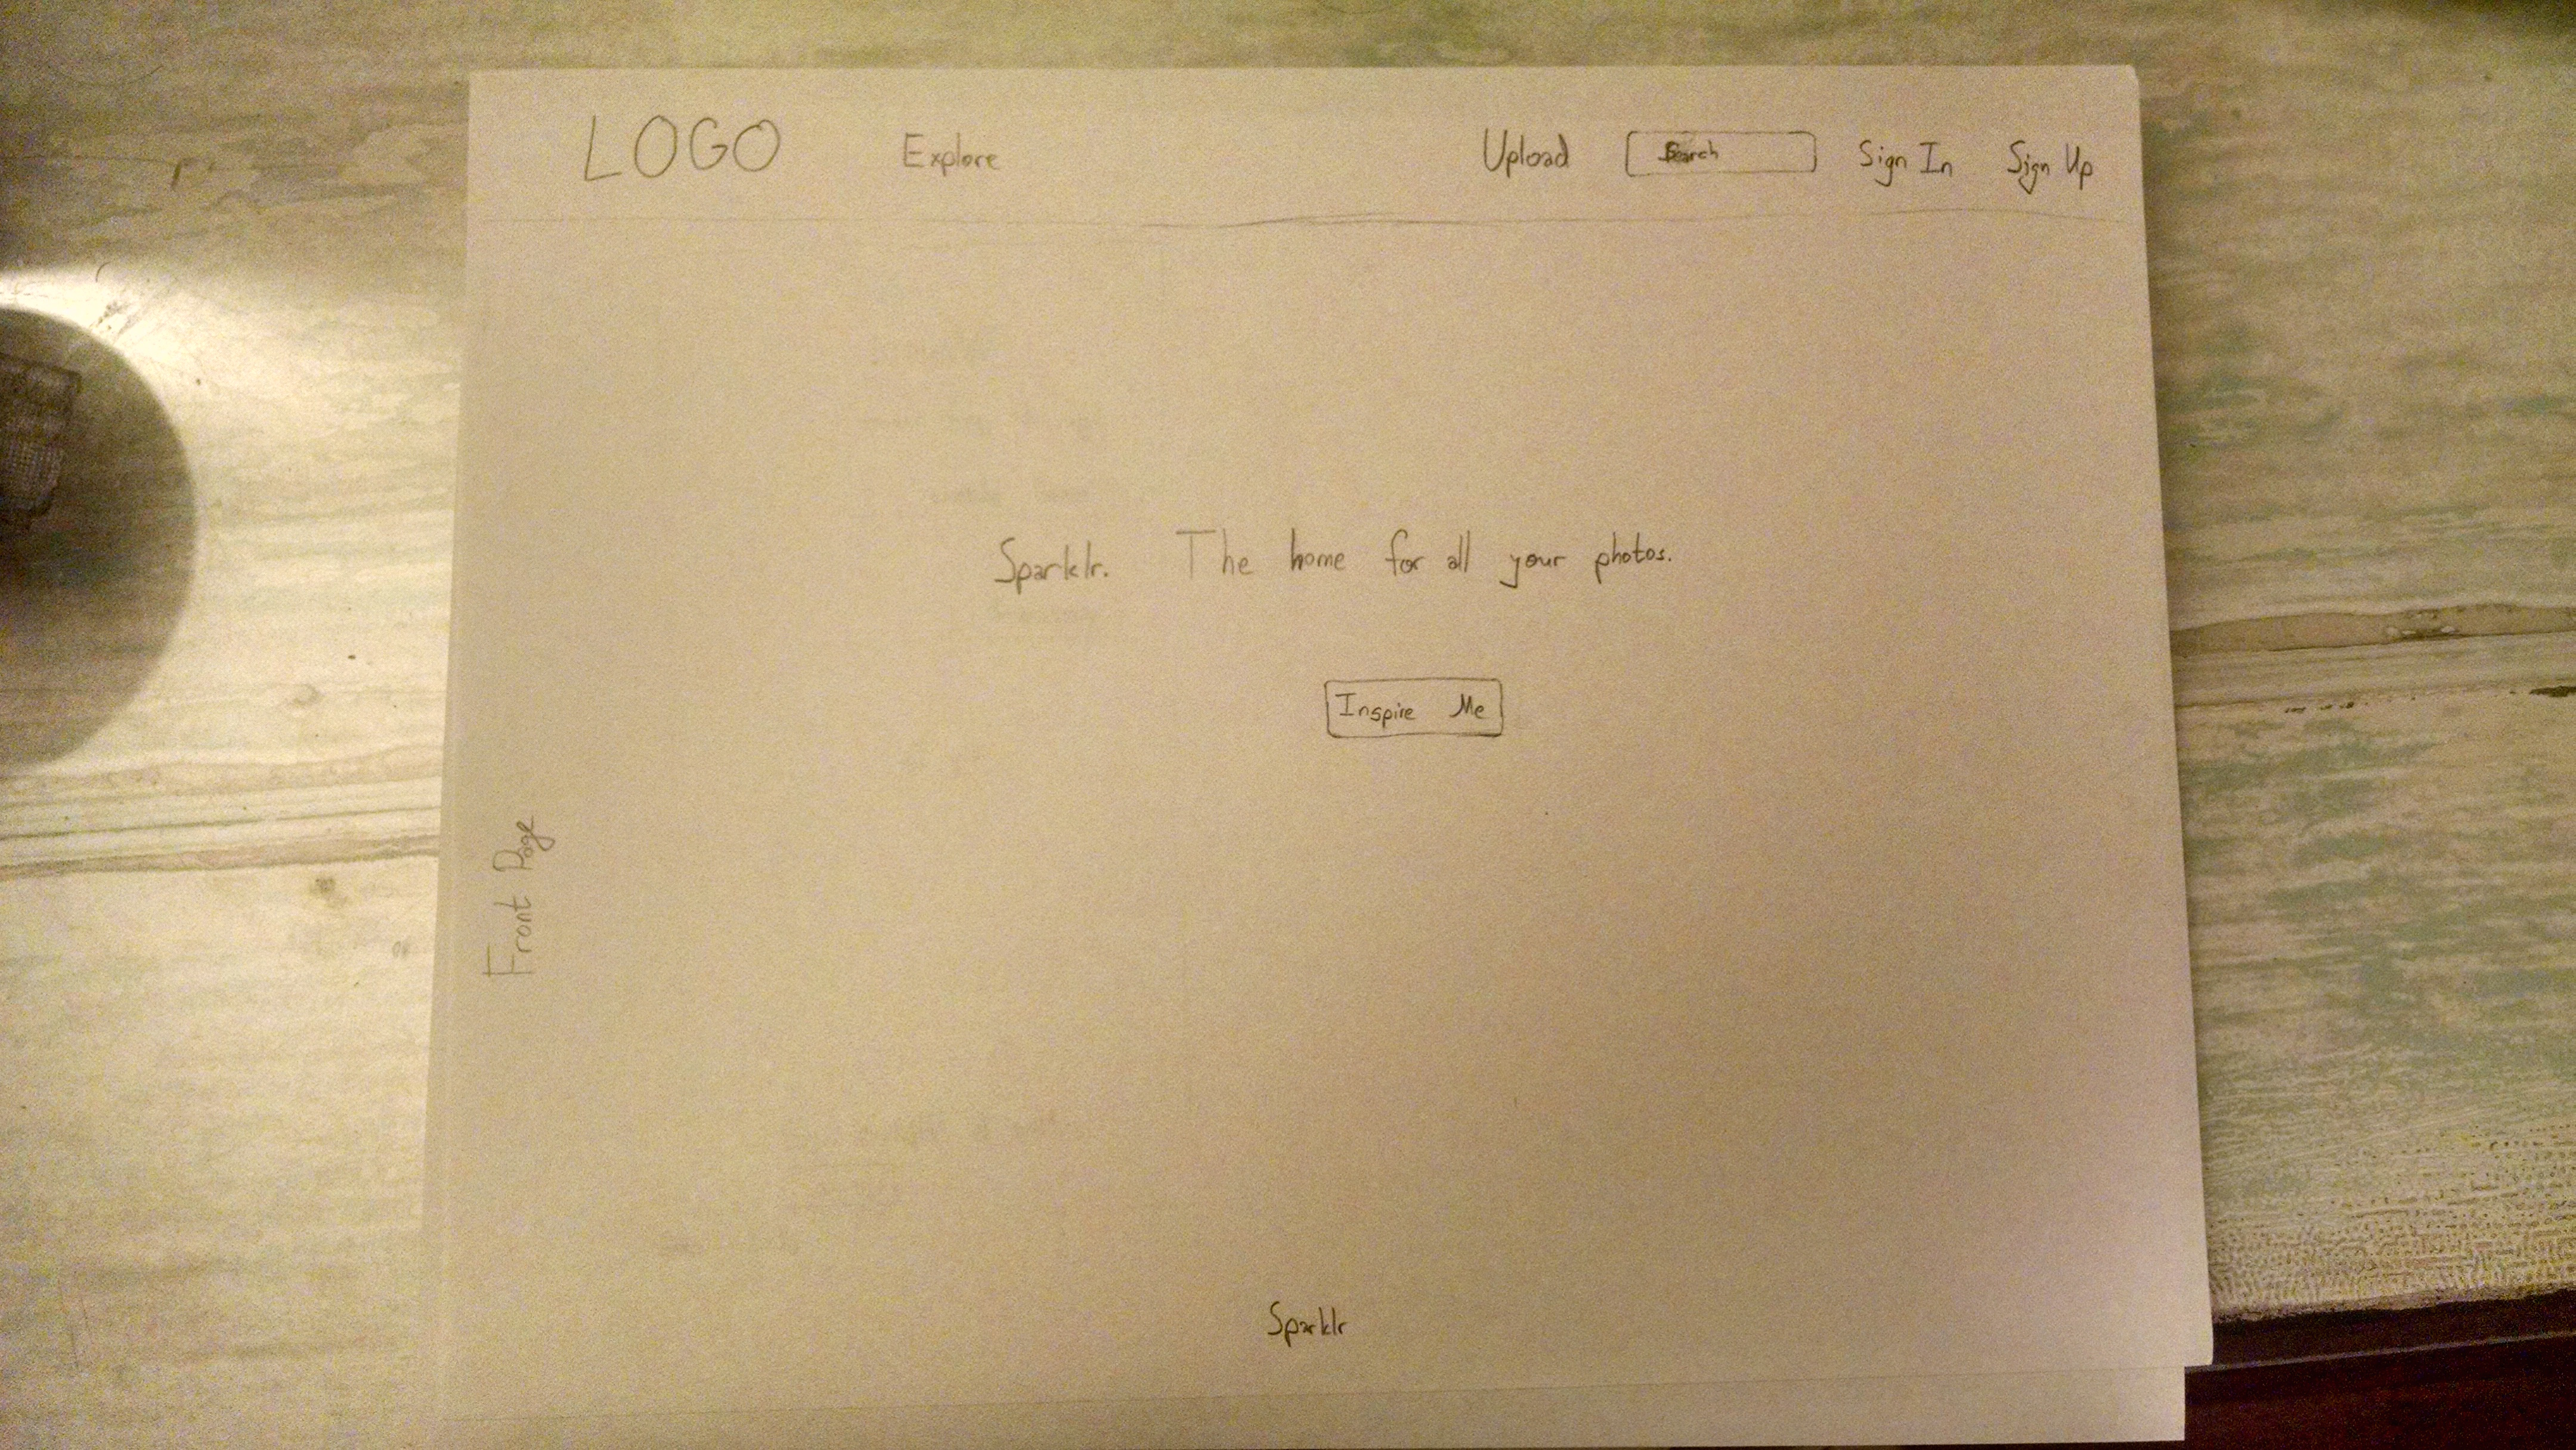 LOGO Explore Upload Search Sign In Sign Up
Sparklr. The home for all your photos.
Inspire Me
Front Page
Sparklr